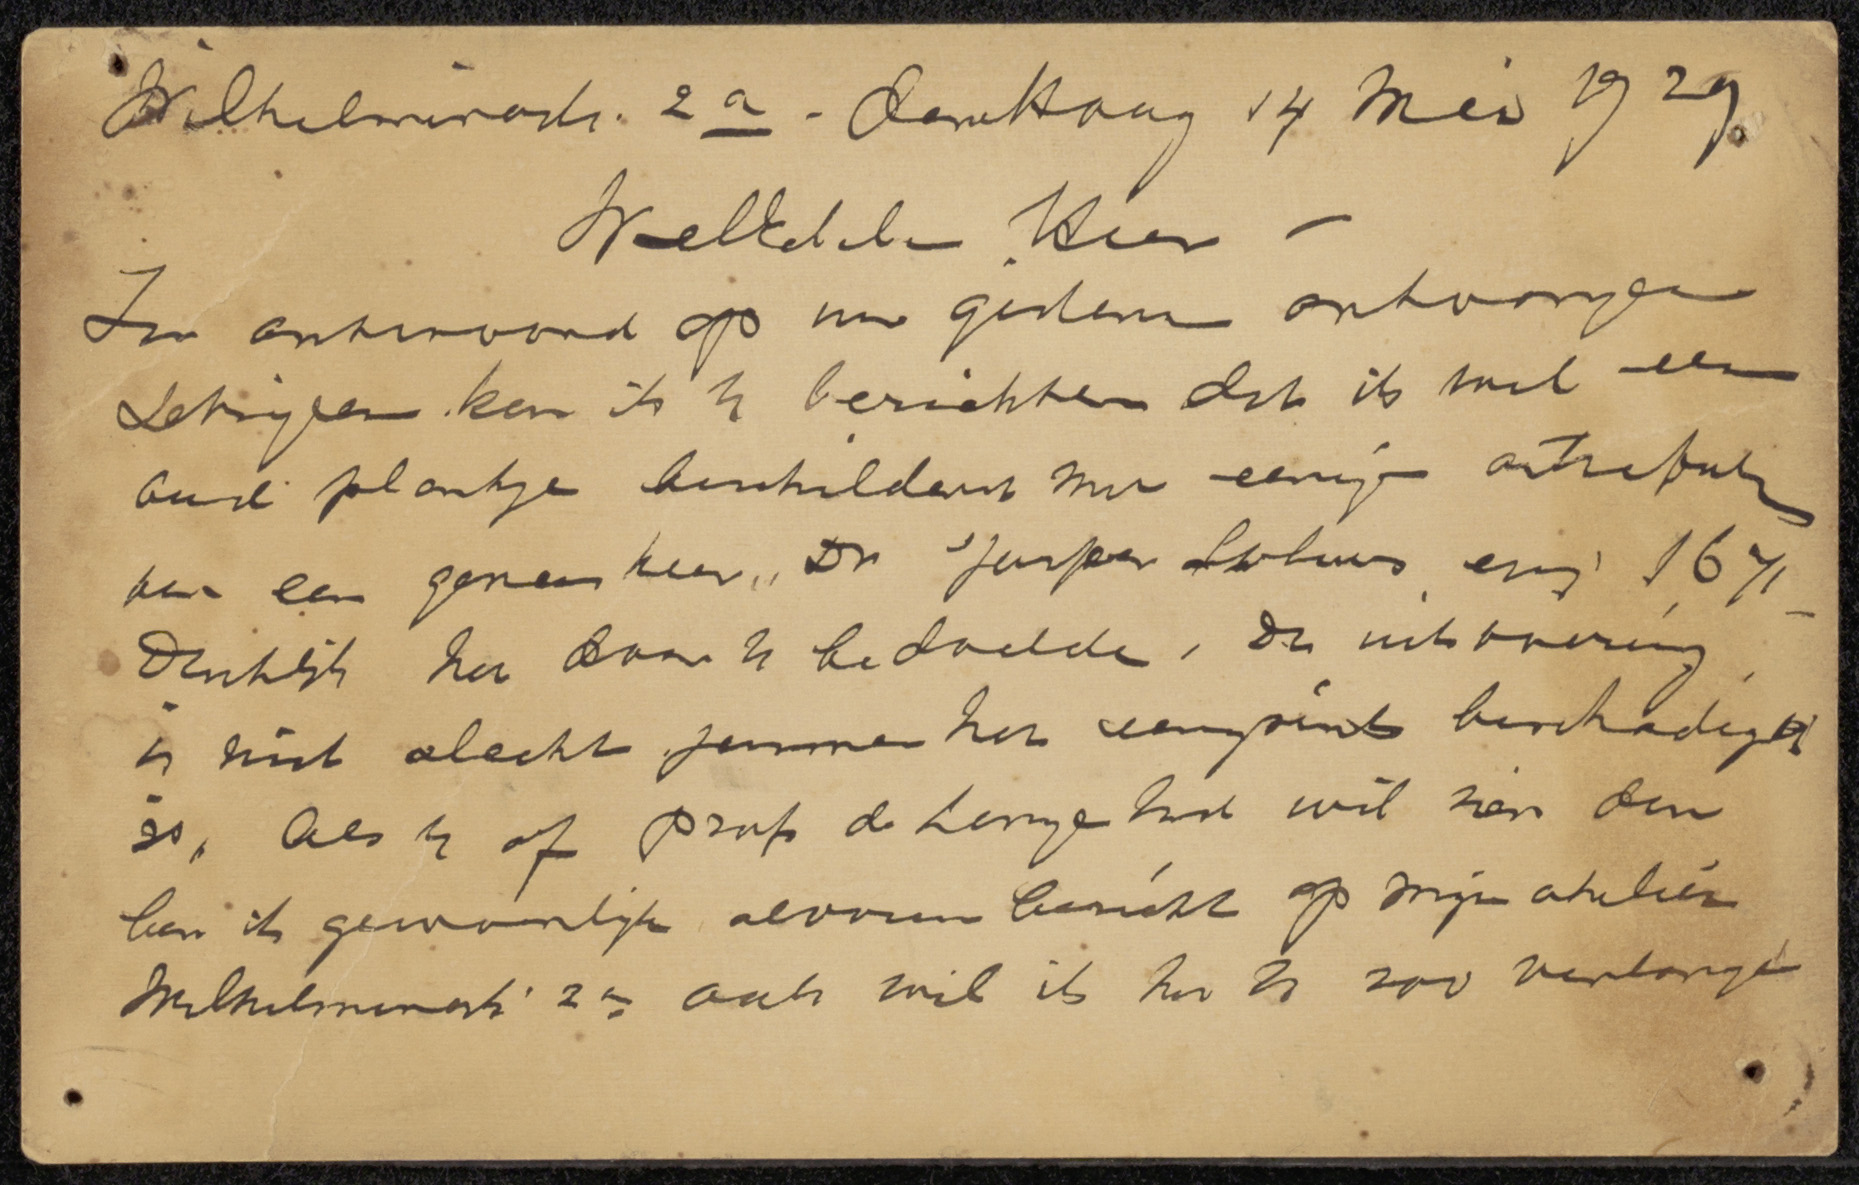 Wilhelminastr. 2a - den Haag 14 Mei 1929
WelEdele Heer -
In antwoord op uw gisteren ontvangen
schrijven kan ik U berichten dat ik wel een
oud plankje beschilderd met eenige
van een geneesheer, Dr Jasper 167
Denkelijk het door U bedoelde, De uitvoering
is niet slecht jammer het eenigsints beschadigd
is, Als U of Prof de Lange het wil zien dan
ben ik gewoonlijk alvorens bericht op mijn atelier
Wilhelminastr 2a ook wil ik het U zoo verlangd